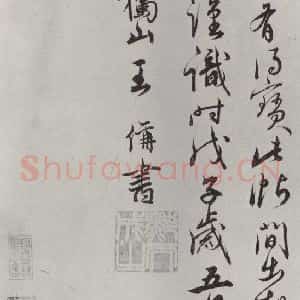 有得寶此帖間出
謹識時戊子歲五
山王偁書
Shufawang.CN